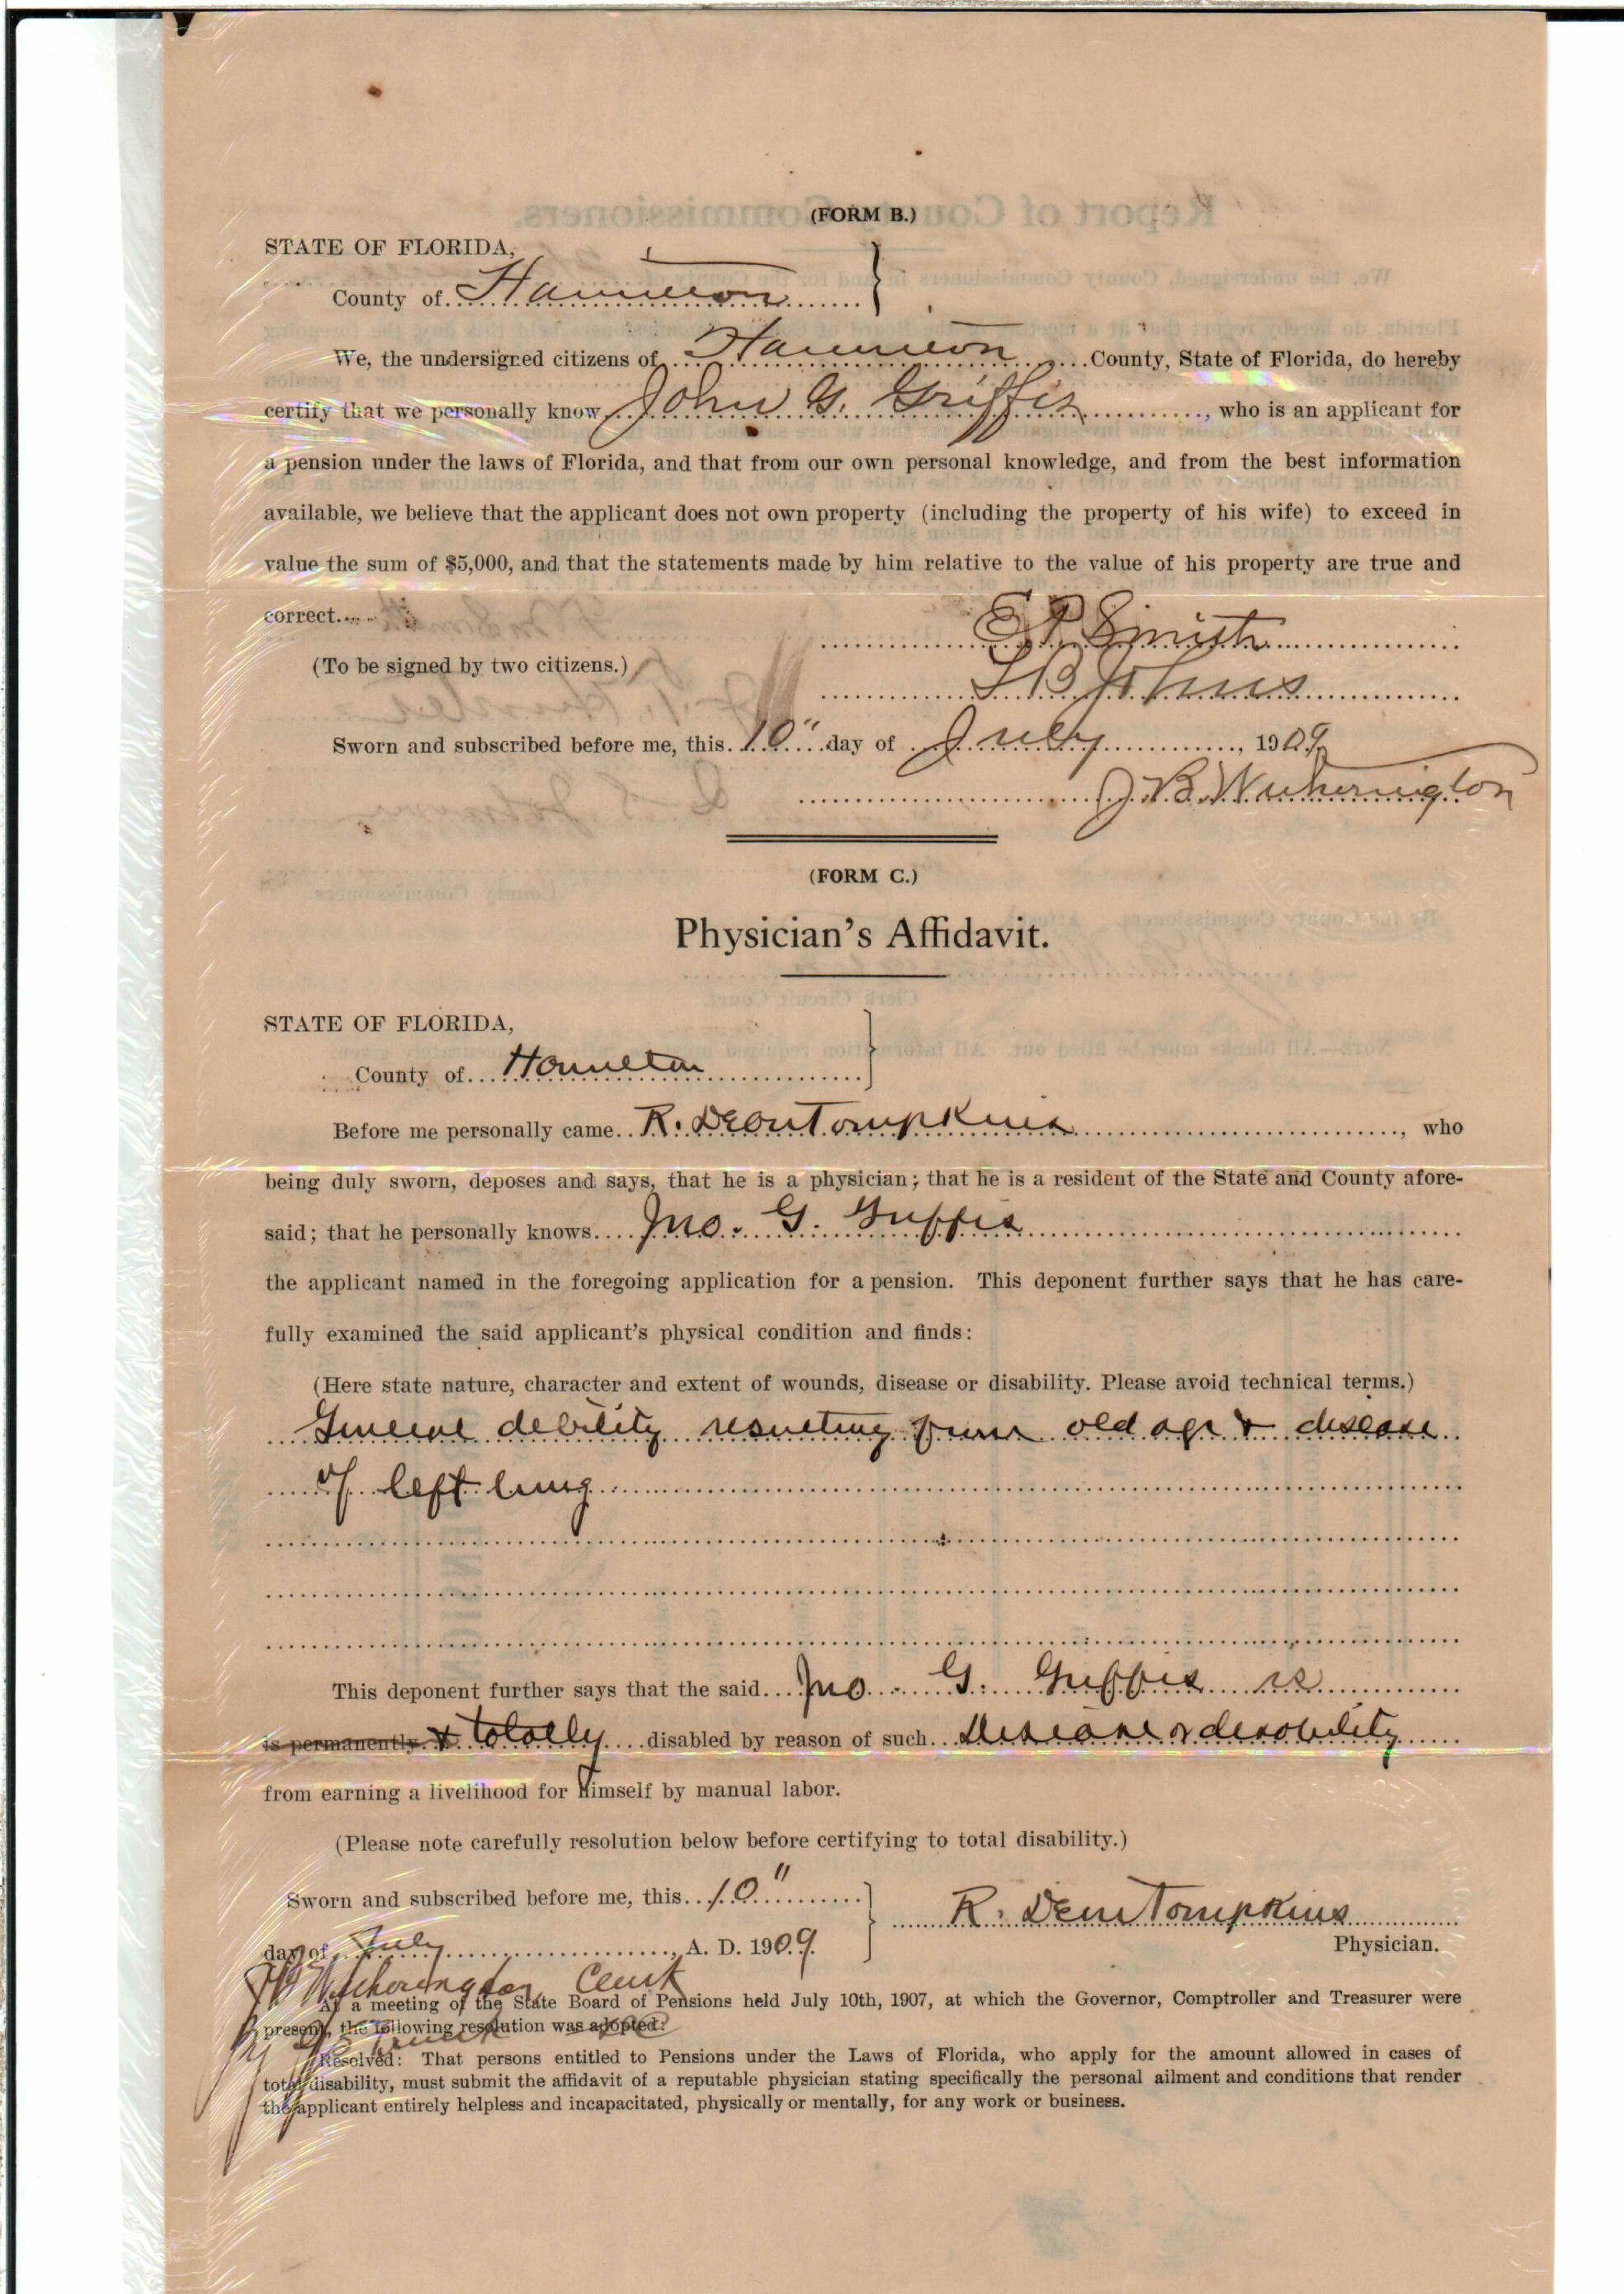 (FORM B.)
STATE OF FLORIDA,
County of Hamilton
We, the undersigned citizens of Hamilton County, State of Florida, do hereby
certify that we personally know John G. Griffis, who is an applicant for
a pension under the laws of Florida, and that from our own personal knowledge, and from the best information
available, we believe that the applicant does not own property (including the property of his wife) to exceed in
value the sum of $5,000, and that the statements made by him relative to the value of his property are true and
correct.
E P Smith
(To be signed by two citizens.)
L B Johns
Sworn and subscribed before me, this 10" day of July, 1909
J. B. Witherington
(FORM C.)
Physician's Affidavit.
STATE OF FLORIDA,
County of Hamilton
Before me personally came R. Dean Tompkins, who
being duly sworn, deposes and says, that he is a physician; that he is a resident of the State and County afore-
said; that he personally knows Jno. G. Griffis
the applicant named in the foregoing application for a pension. This deponent further says that he has care-
fully examined the said applicant's physical condition and finds:
(Here state nature, character and extent of wounds, disease or disability. Please avoid technical terms.)
General debility resulting from old age & disease
of left lung
This deponent further says that the said Jno. G. Griffis is
is permanently & totally disabled by reason of such disease or disability
from earning a livelihood for himself by manual labor.
(Please note carefully resolution below before certifying to total disability.)
Sworn and subscribed before me, this 10"
R. Dean Tompkins
day of July, A. D. 1909.
Physician.
J B Witherington Clerk
At a meeting of the State Board of Pensions held July 10th, 1907, at which the Governor, Comptroller and Treasurer were
present, the following resolution was adopted:
By
Resolved: That persons entitled to Pensions under the Laws of Florida, who apply for the amount allowed in cases of
total disability, must submit the affidavit of a reputable physician stating specifically the personal ailment and conditions that render
the applicant entirely helpless and incapacitated, physically or mentally, for any work or business.